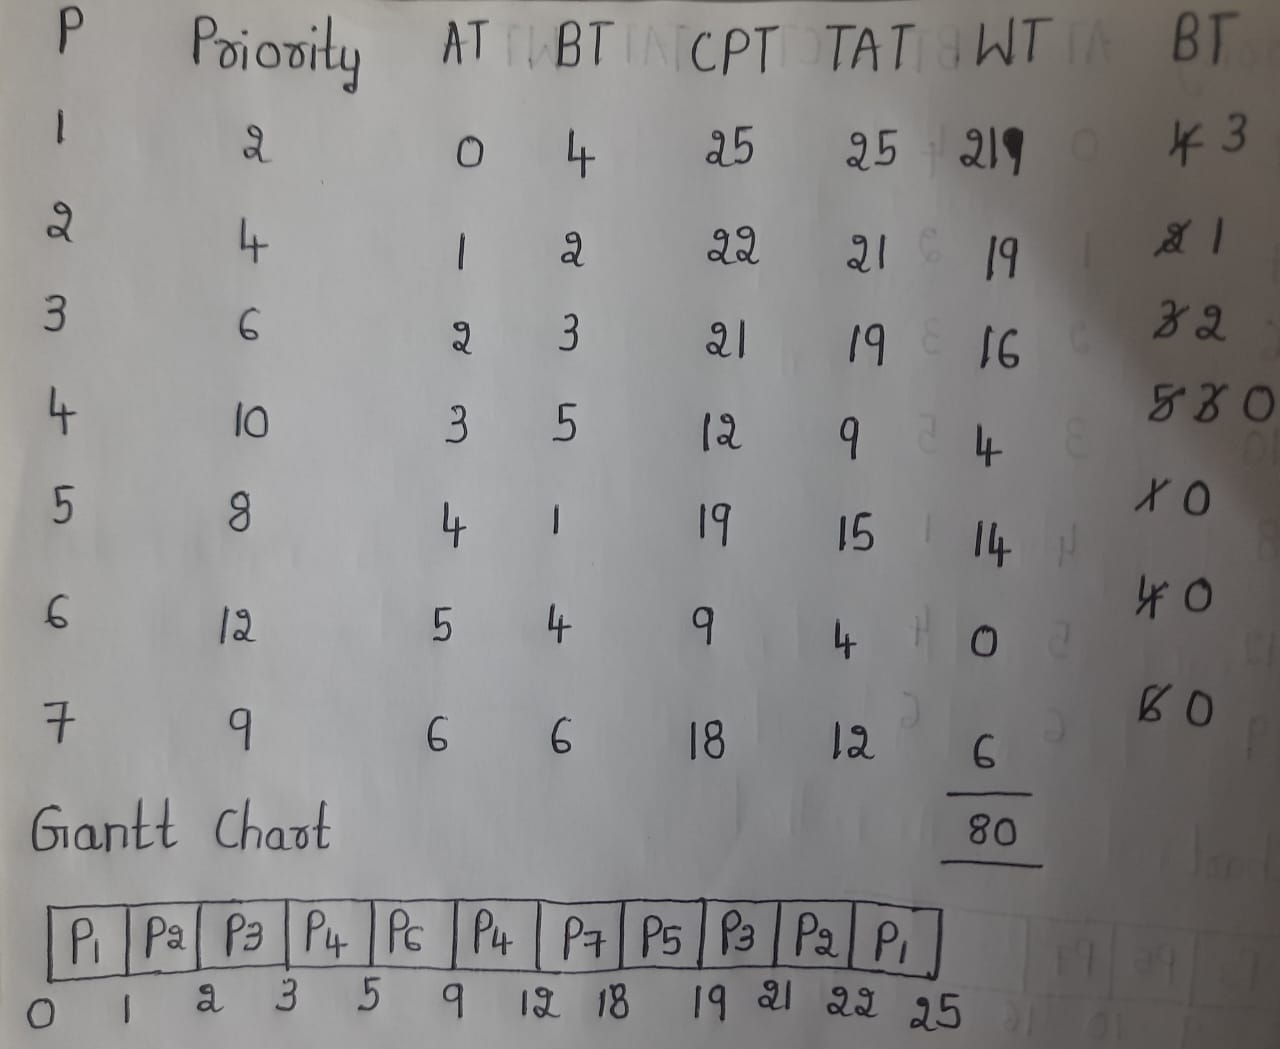 P Priority AT BT CPT TAT WT BT
1 2 0 4 25 25 21 4 3
2 4 1 2 22 21 19 2 1
3 6 2 3 21 19 16 3 2
4 10 3 5 12 9 4 5 3 0
5 8 4 1 19 15 14 1 0
6 12 5 4 9 4 0 4 0
7 9 6 6 18 12 6 6 0
80
Gantt Chart
P1 P2 P3 P4 P6 P4 P7 P5 P3 P2 P1
0 1 2 3 5 9 12 18 19 21 22 25